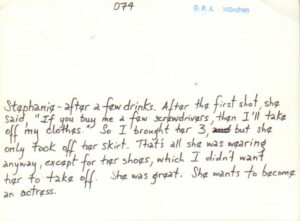 074
D.P.A. - München
Stephanie - after a few drinks. After the first shot, she
said, "If you buy me a few screwdrivers, then I'll take
off my clothes." So I brought her 3, and but she
only took off her skirt. That's all she was wearing
anyway, except for her shoes, which I didn't want
her to take off. She was great. She wants to become
an actress.